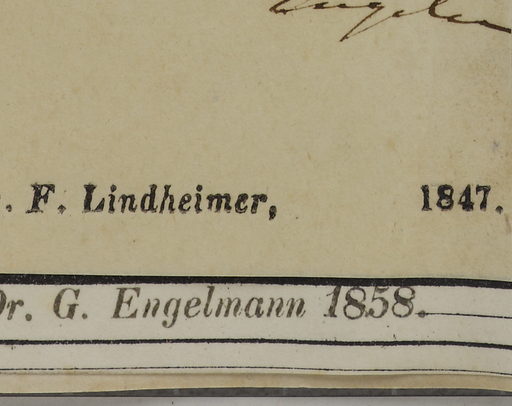 F. Lindheimer, 1847.
Dr. G. Engelmann 1858.